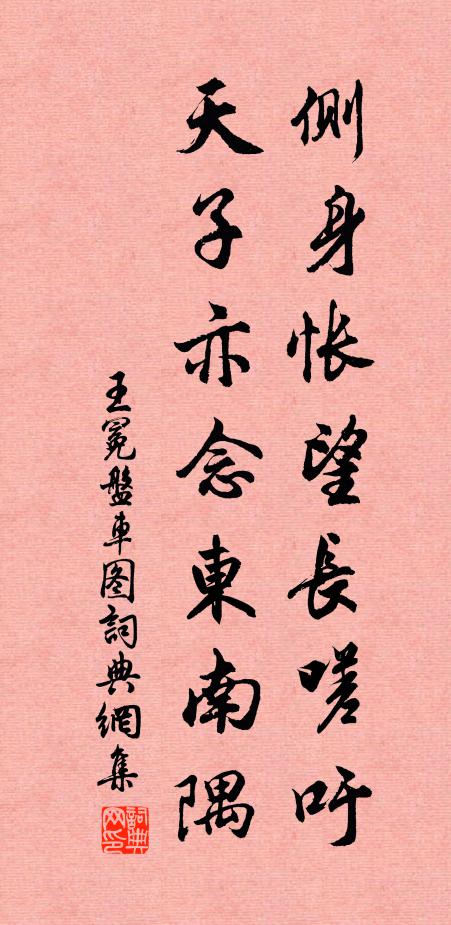 侧身怅望長嗟吁
天子亦念東南隅
王冕盤車图詞典網集
詞典网印